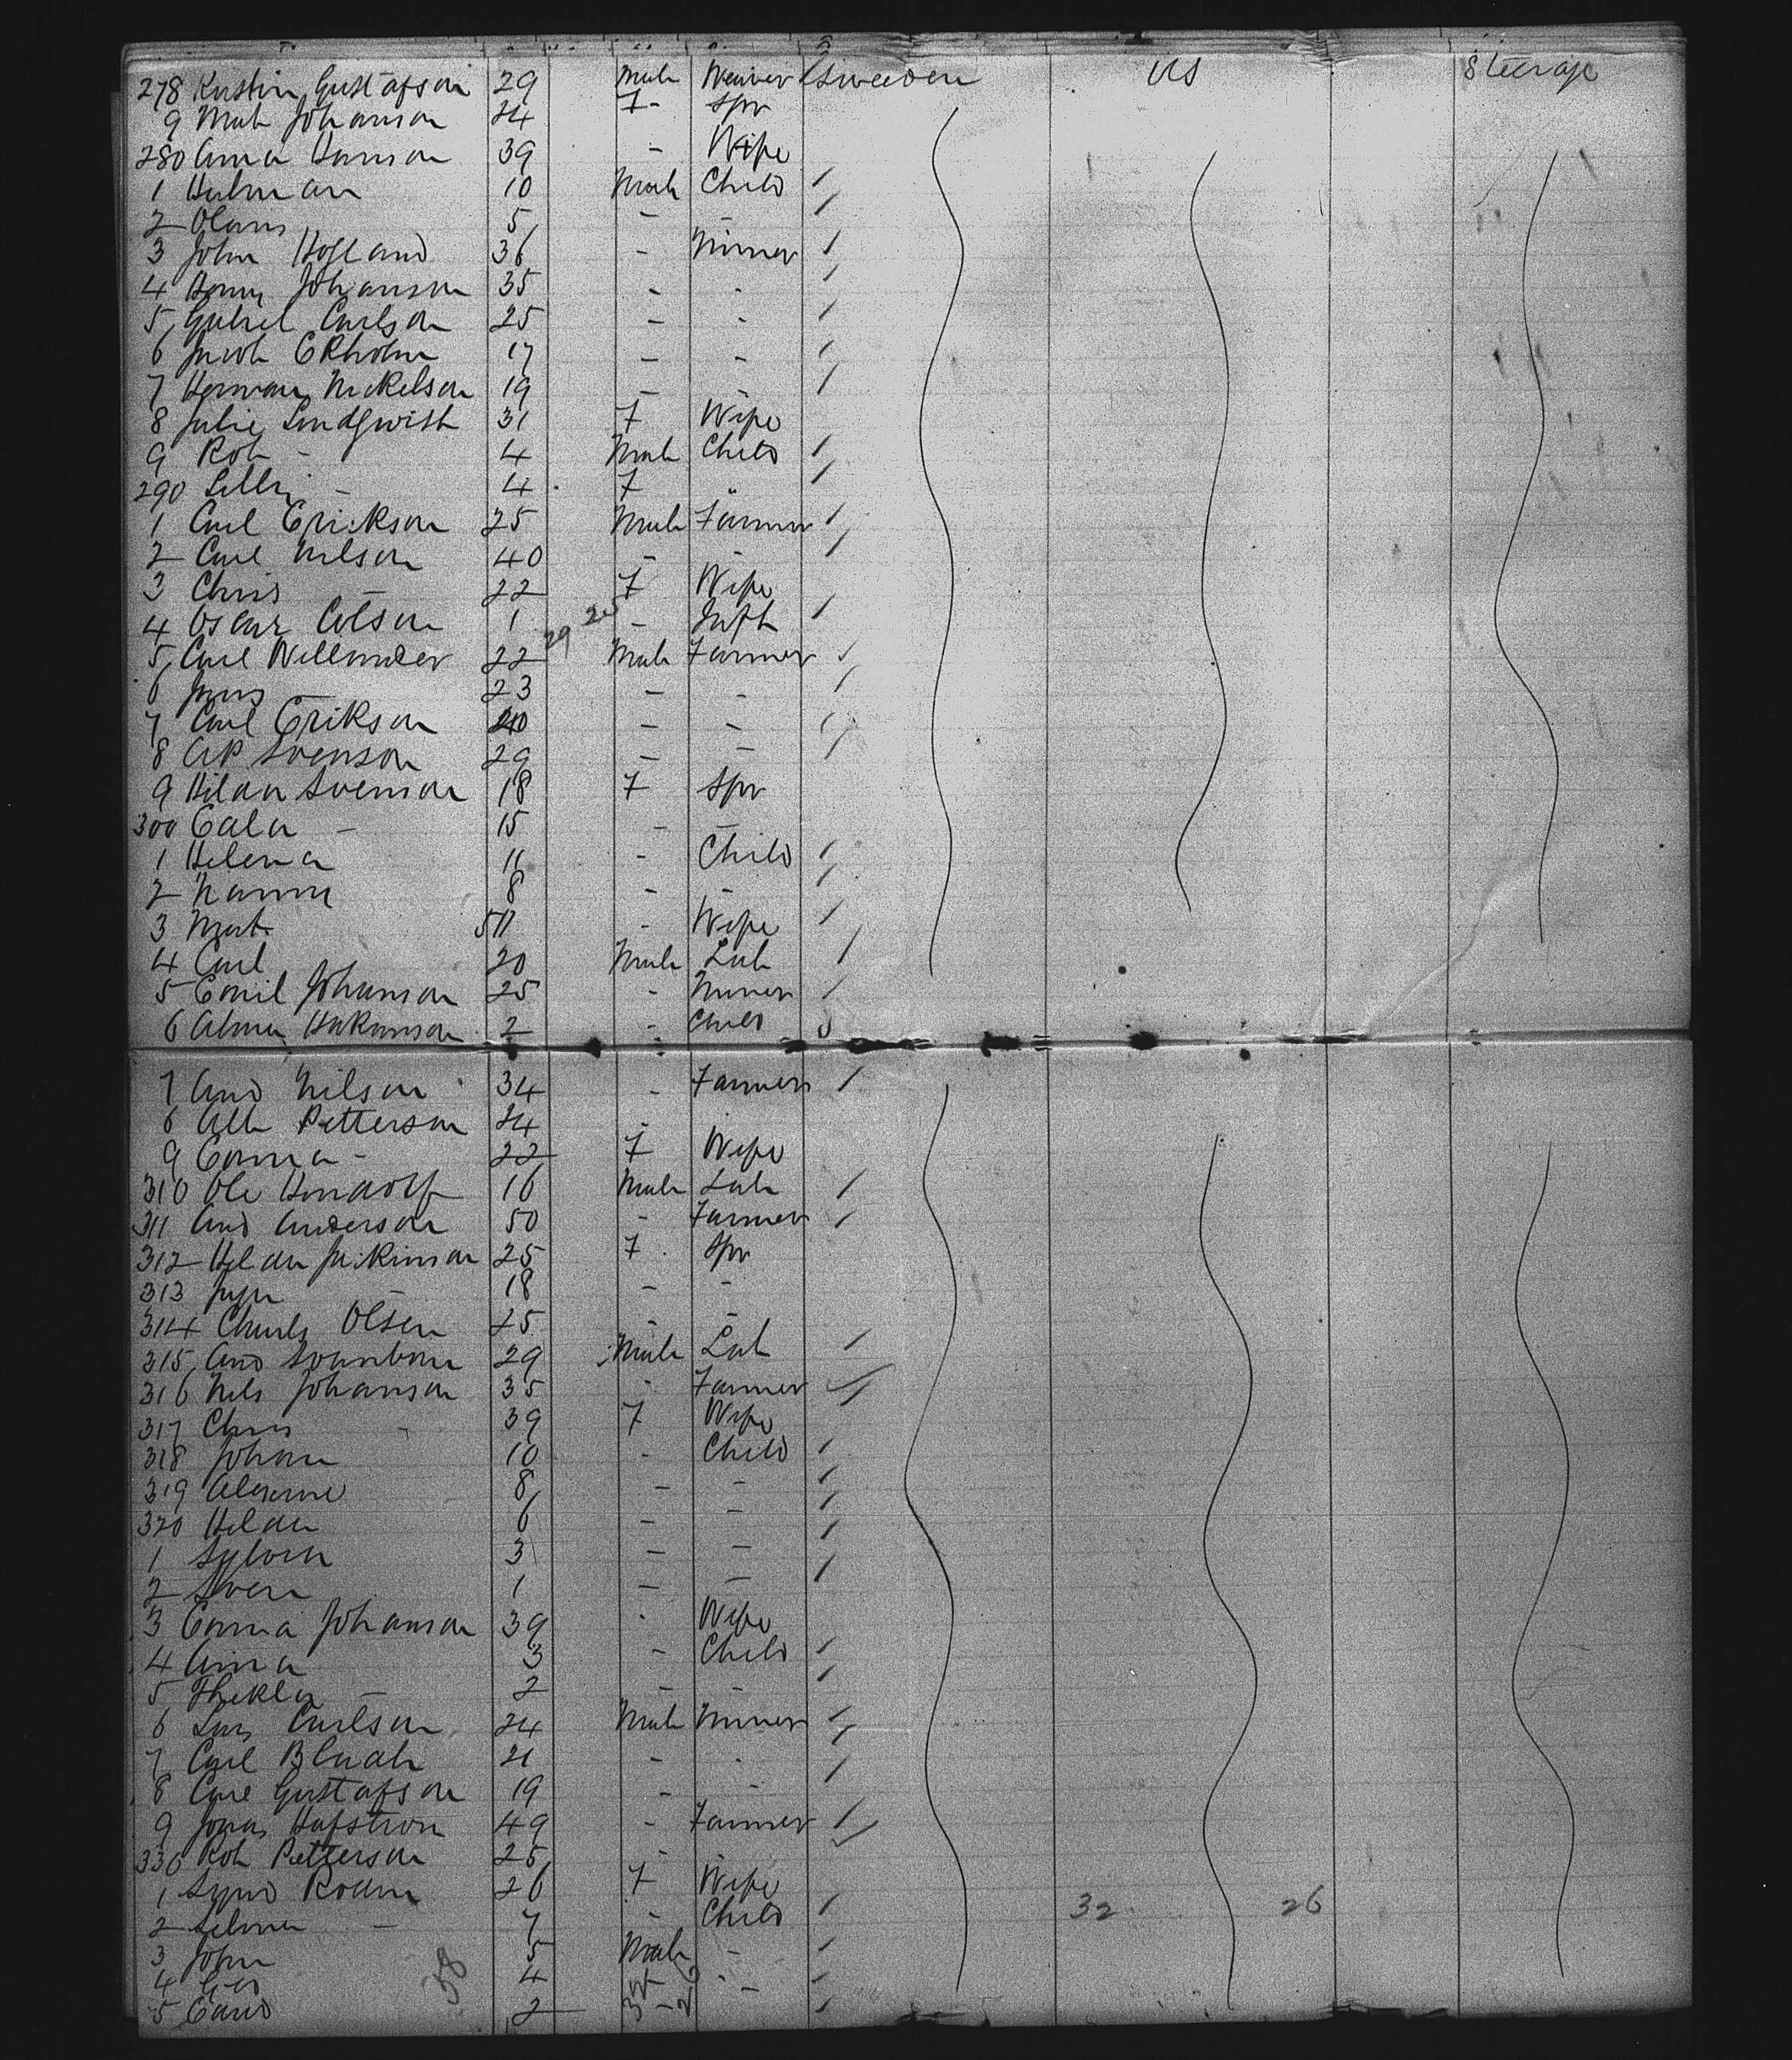 278 Kustin Gustafson 29 Male Weaver Sweden US Steerage
9 Mat Johanson 24 F - Spr
280 Anna Hanson 39 - Wife
1 Halman 10 Male Child
2 Olans 5 - -
3 John Hogland 36 - Miner
4 Henry Johanson 35 - -
5 Gabriel Carlson 25 - -
6 Jacob Ekholm 17 - -
7 Herman Nickelson 19 - -
8 Julie Lindgwist 31 F Wife
9 Rob - 4 Male Child
290 Selli - 4 F "
1 Carl Erickson 25 Male Farmer
2 Carl Nilson 40 - -
3 Chris - 22 F Wife
4 Oscar Colson 1 - Inft
29 20
5 Carl Willmder 22 Male Farmer
6 Jons - 23 - -
7 Carl Erikson 20 - -
8 AP Svenson 29 - -
9 Hilda Svenson 18 F Spr
300 Eala - 15 - -
1 Helena 11 - Child
2 Nanny 8 - -
3 Mat 50 - Wife
4 Carl 20 Male Lab
5 Emil Johanson 25 - Miner
6 Alma Hakanson 2 - Child
7 And Nilson 34 - Farmers
8 Alb Petterson 24 -
9 Emma - 22 F Wife
310 Ole 16 Male Lab
311 And Anderson 50 - Farmer
312 Hilda 25 F Spr
313 - 18 - -
314 Charls Olsen 25 - -
315 And 29 Male Lab
316 Nels Johanson 35 - Farmer
317 Chris - 39 F Wife
318 Johan 10 - Child
319 8 - -
320 Hilda 6 - -
1 Sylvia 3 - -
2 Sven 1 - -
3 Emma Johanson 39 - Wife
4 Anna 3 - Child
5 Thekla - 2 - -
6 Lars Carlson 24 Male Miner
7 Carl 21 - -
8 Carl Gustafson 19 - -
9 Jonas Hafstron 49 - Farmer
330 Rob Petterson 25 - -
1 26 F Wife
2 Selma - 7 - Child 32 26
3 John 5 Male -
4 Geo 4 - -
5 2 -
58 32 - 26